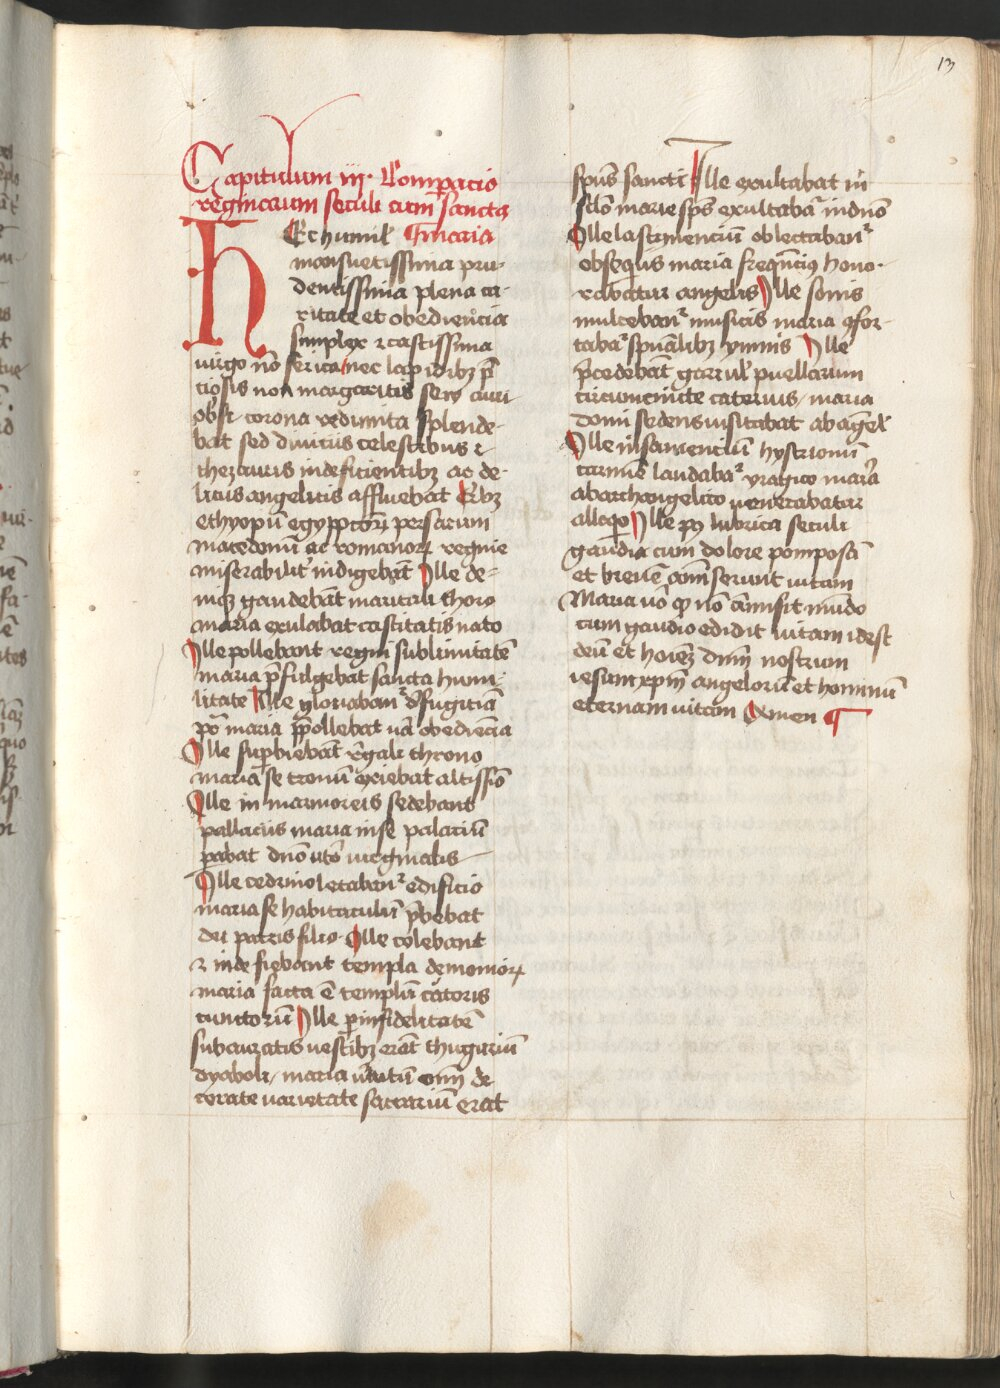 13
Capitulum iij. Comparacio
reginarum seculi cum sancta
HEc humil' ¶ maria
mansuetissima pru-
dentissima plena ca-
ritate et obediencia
simplex ⁊ castissima
virgo nō serica nec lapidibꝫ p̄
ciosis non margaritis seu auri
obsi corona redimita splende-
bat sed diuiciis celestibus ⁊
thezauris indeficientibꝫ ac de-
liciis angelicis affluebat
ethyopū egypcioꝝ persarum
macedonū ac romanoꝝ regine
miserabilit' indigebāt Ille de-
niqꝫ gaudebāt maritali thoro
maria exulabat castitatis nato
Ille pollebant regni sublimitatē
maria p̄fulgebat sancta humi-
litate Ille gloriaban̄ᷣ
maria p̄pollebat obediēcia
Ille supbiebāt r̄gali throno
maria se tronū altissīo
Ille in marmoreis sedebant
pallaciis maria in se palaciū
ꝑabat dn̄o virginalis
Ille cedrino letaban̄ᷣ edificio
maria se habitaculū p̄bebat
dei patris filio. Ille colebant
⁊ inde fiebant templa demonioꝝ
maria facta ē templū c̄atoris
cunctorū Ille ꝑ infidelitatē
subaratis vestibꝫ erāt thugurium
dyaboli, maria v̄tutū om̄i de
corate varietate sacrariū erat
spūs sancti Ille exultabat in
sc̄lo marie sp̄s exultabaᷣ in dn̄o
Ille lasciuienciū oblectabanᷣ
obsequiis maria freqn̄cius hono-
rabatur angelis Ille sonis
mulcebanᷣ musicis maria ꝯfor-
tabaᷣ spūalibꝫ ymnis Ille
p̄cedebāt garrul' puellarum
circumcincte cateruis, maria
domi sedens visitabat ab āgel'
Ille insaniencium hystrionū
carmīe laudabaᷣ tragico maria
ab archangelico venerabatur
alloq̄o Ille lubrica seculi
gaudia cum dolore pomposā
et breuē amiserunt vitam
Maria v̄o q̄ nō amisit mūdo
cum gaudio edidit vitam idest
deū et hoīeꝫ dn̄m nostrum
iesum xpm̄ angelorū et hominū
eternam vitam Amen ¶